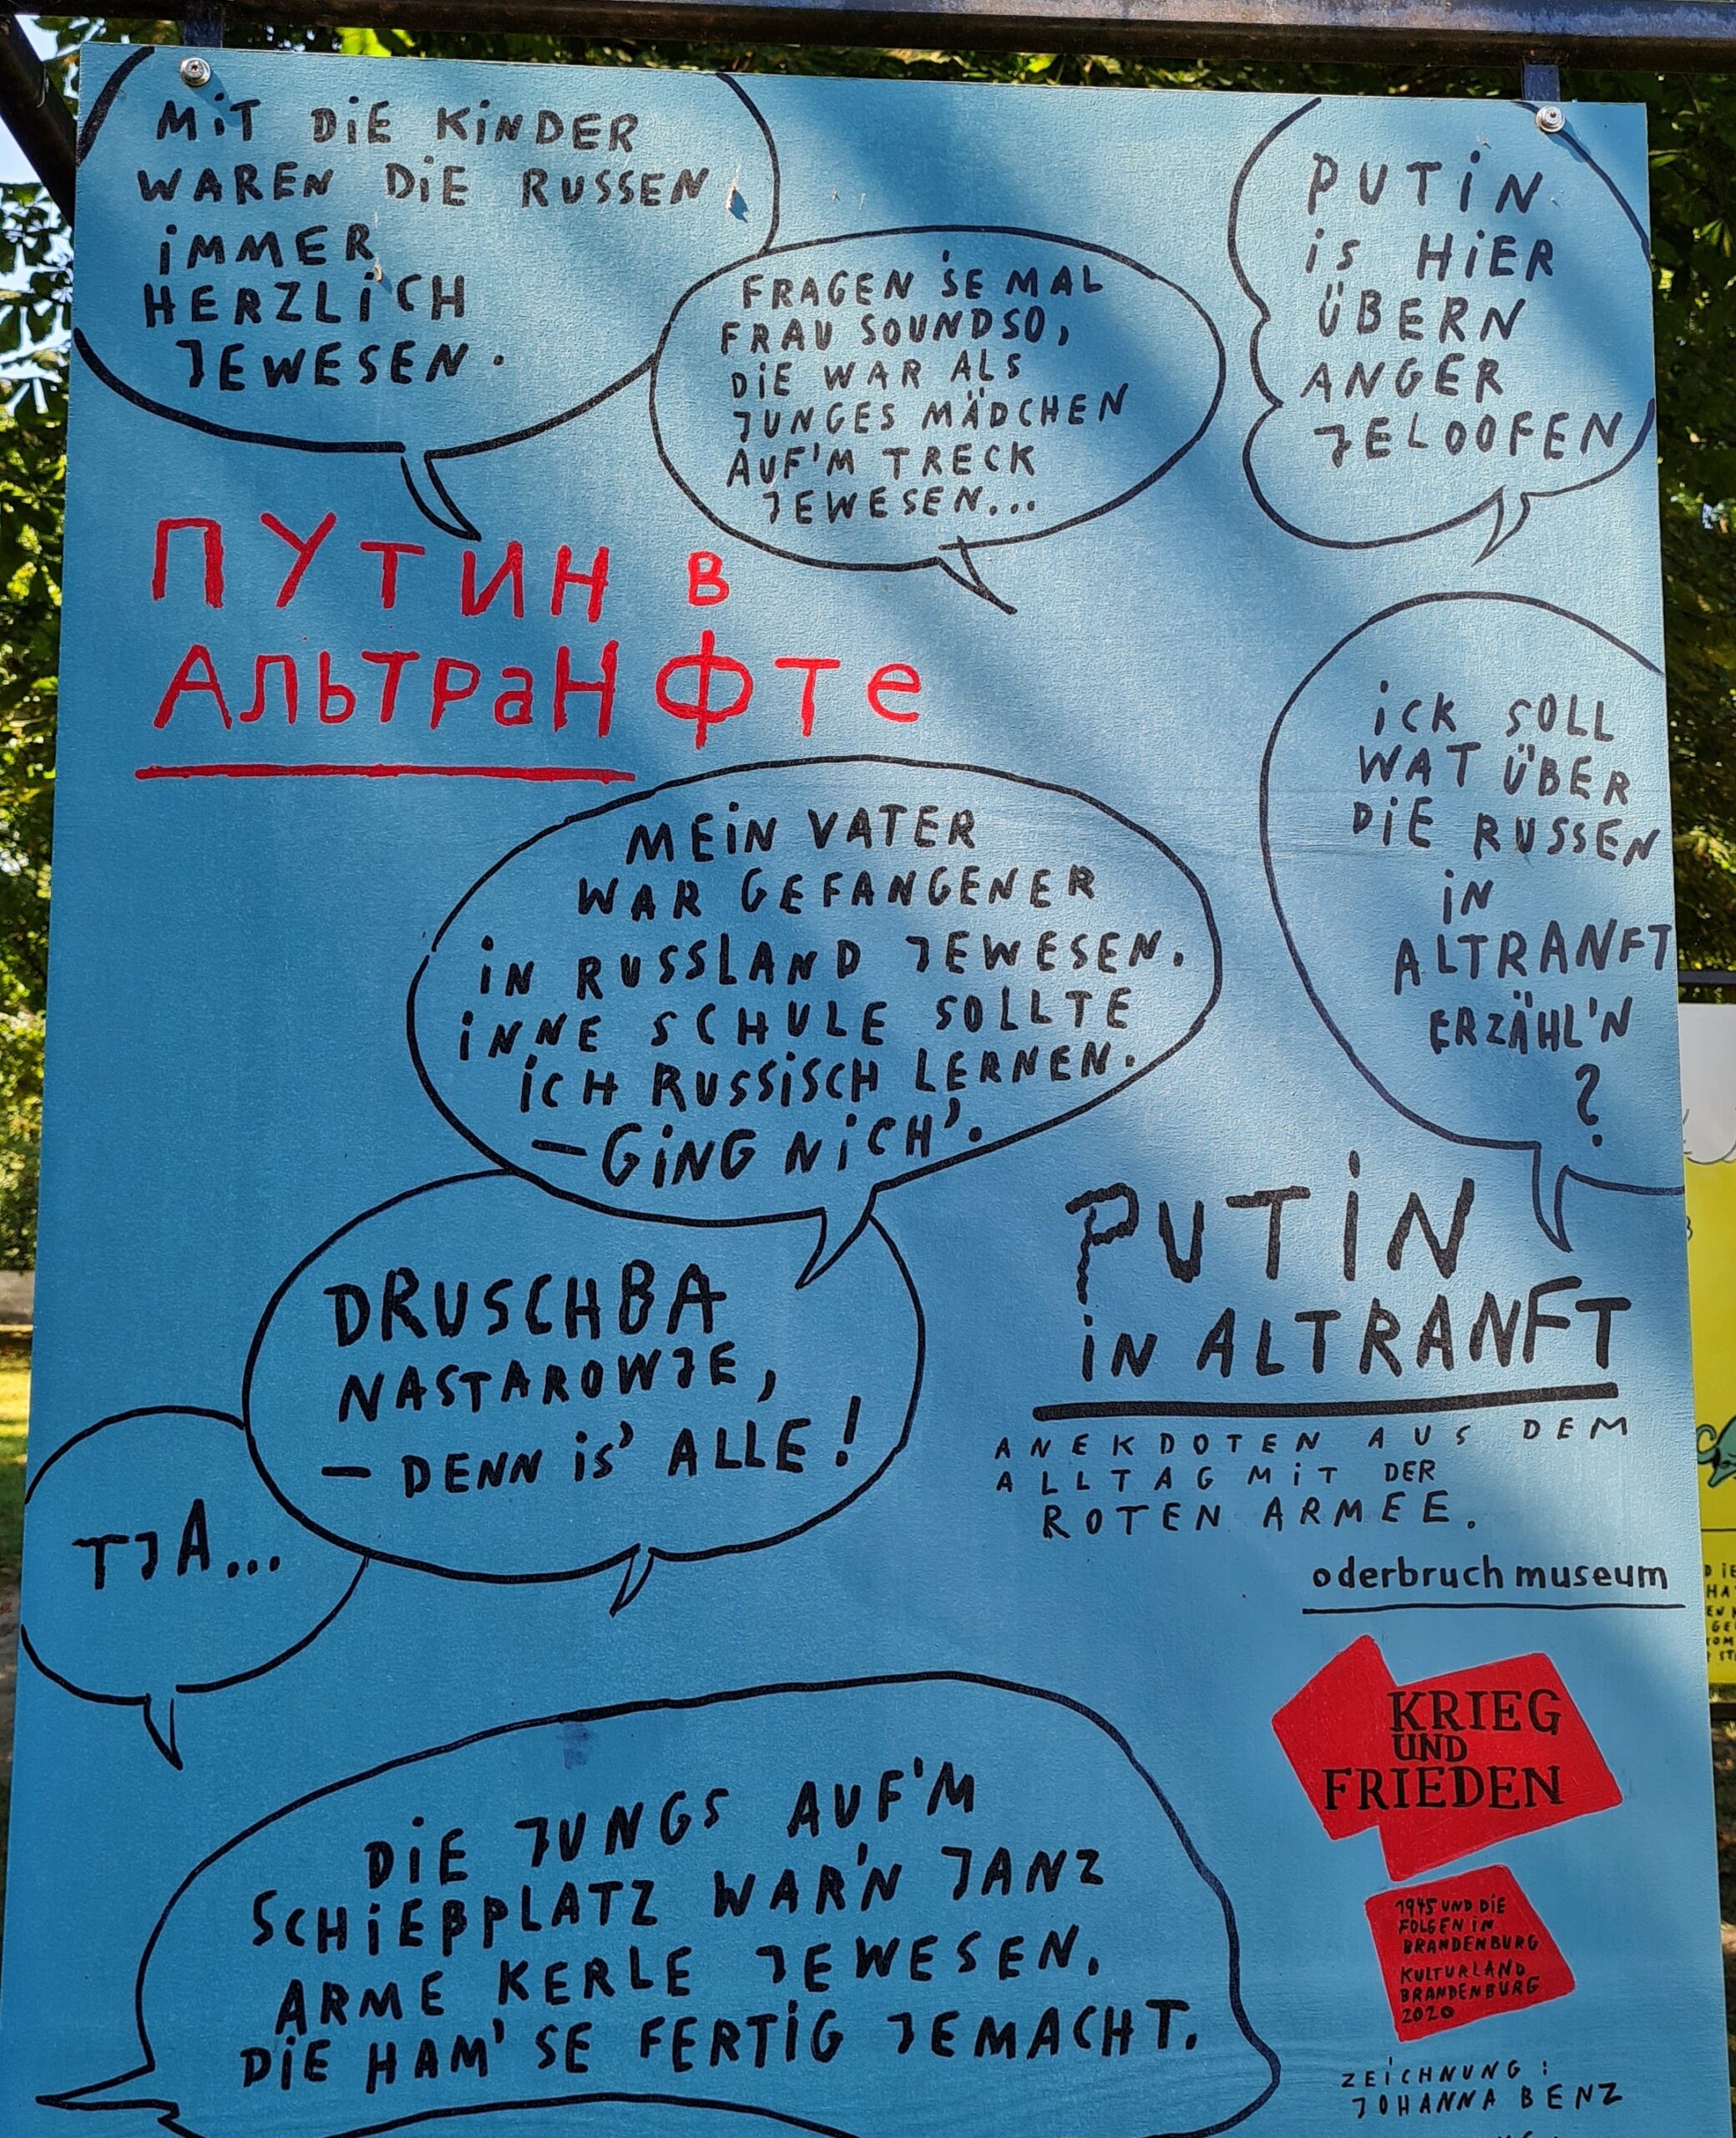 MiT DiE KiNDER
WAREN DiE RUSSEN
iMMER
HERZLiCH
JEWESEN.
FRAGEN SE MAL
FRAU SOUNDSO,
DiE WAR ALS
JUNGES MÄDCHEN
AUF'M TRECK
JEWESEN...
PUTiN
iS HiER
ÜBERN
ANGER
JELOOFEN
ПУТИН в
АльтраНфте
iCK SOLL
WAT ÜBER
DiE RUSSEN
iN
ALTRANFT
ERZÄHL'N
?
MEiN VATER
WAR GEFANGENER
iN RUSSLAND JEWESEN.
iNNE SCHULE SOLLTE
iCH RUSSiSCH LERNEN.
– GiNG NiCH'.
DRUSCHBA
NASTAROWJE,
– DENN iS' ALLE!
PUTiN
iN ALTRANFT
ANEKDOTEN AUS DEM
ALLTAG MiT DER
ROTEN ARMEE.
oderbruch museum
TJA...
KRIEG
UND
FRIEDEN
1945 UND DiE
FOLGEN iN
BRANDENBURG
KULTURLAND
BRANDENBURG
2020
DiE JUNGS AUF'M
SCHiEßPLATZ WAR'N JANZ
ARME KERLE JEWESEN.
DiE HAM' SE FERTiG JEMACHT.
ZEiCHNUNG:
JOHANNA BENZ